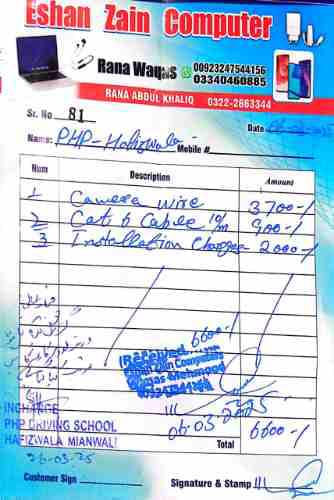 Eshan Zain Computer
Rana Waqas 00923247544156
03340460885
RANA ABDUL KHALIQ 0322-2663344
Sr. No 81
Date
Name: PHP-Hafizwala Mobile #
Num Description Amount
1 Camera Wire 3700-/
2 Cat 6 Cable 10/m 900-/
3 Installation Charges 2000-/
6600-/
Received
Eshan Zain Computers
Waqas Mehmood
06-03-2025
INCHARGE
PHP DRIVING SCHOOL
HAFIZWALA MIANWALI
Total 6600-/
26-03-25
Customer Sign Signature & Stamp